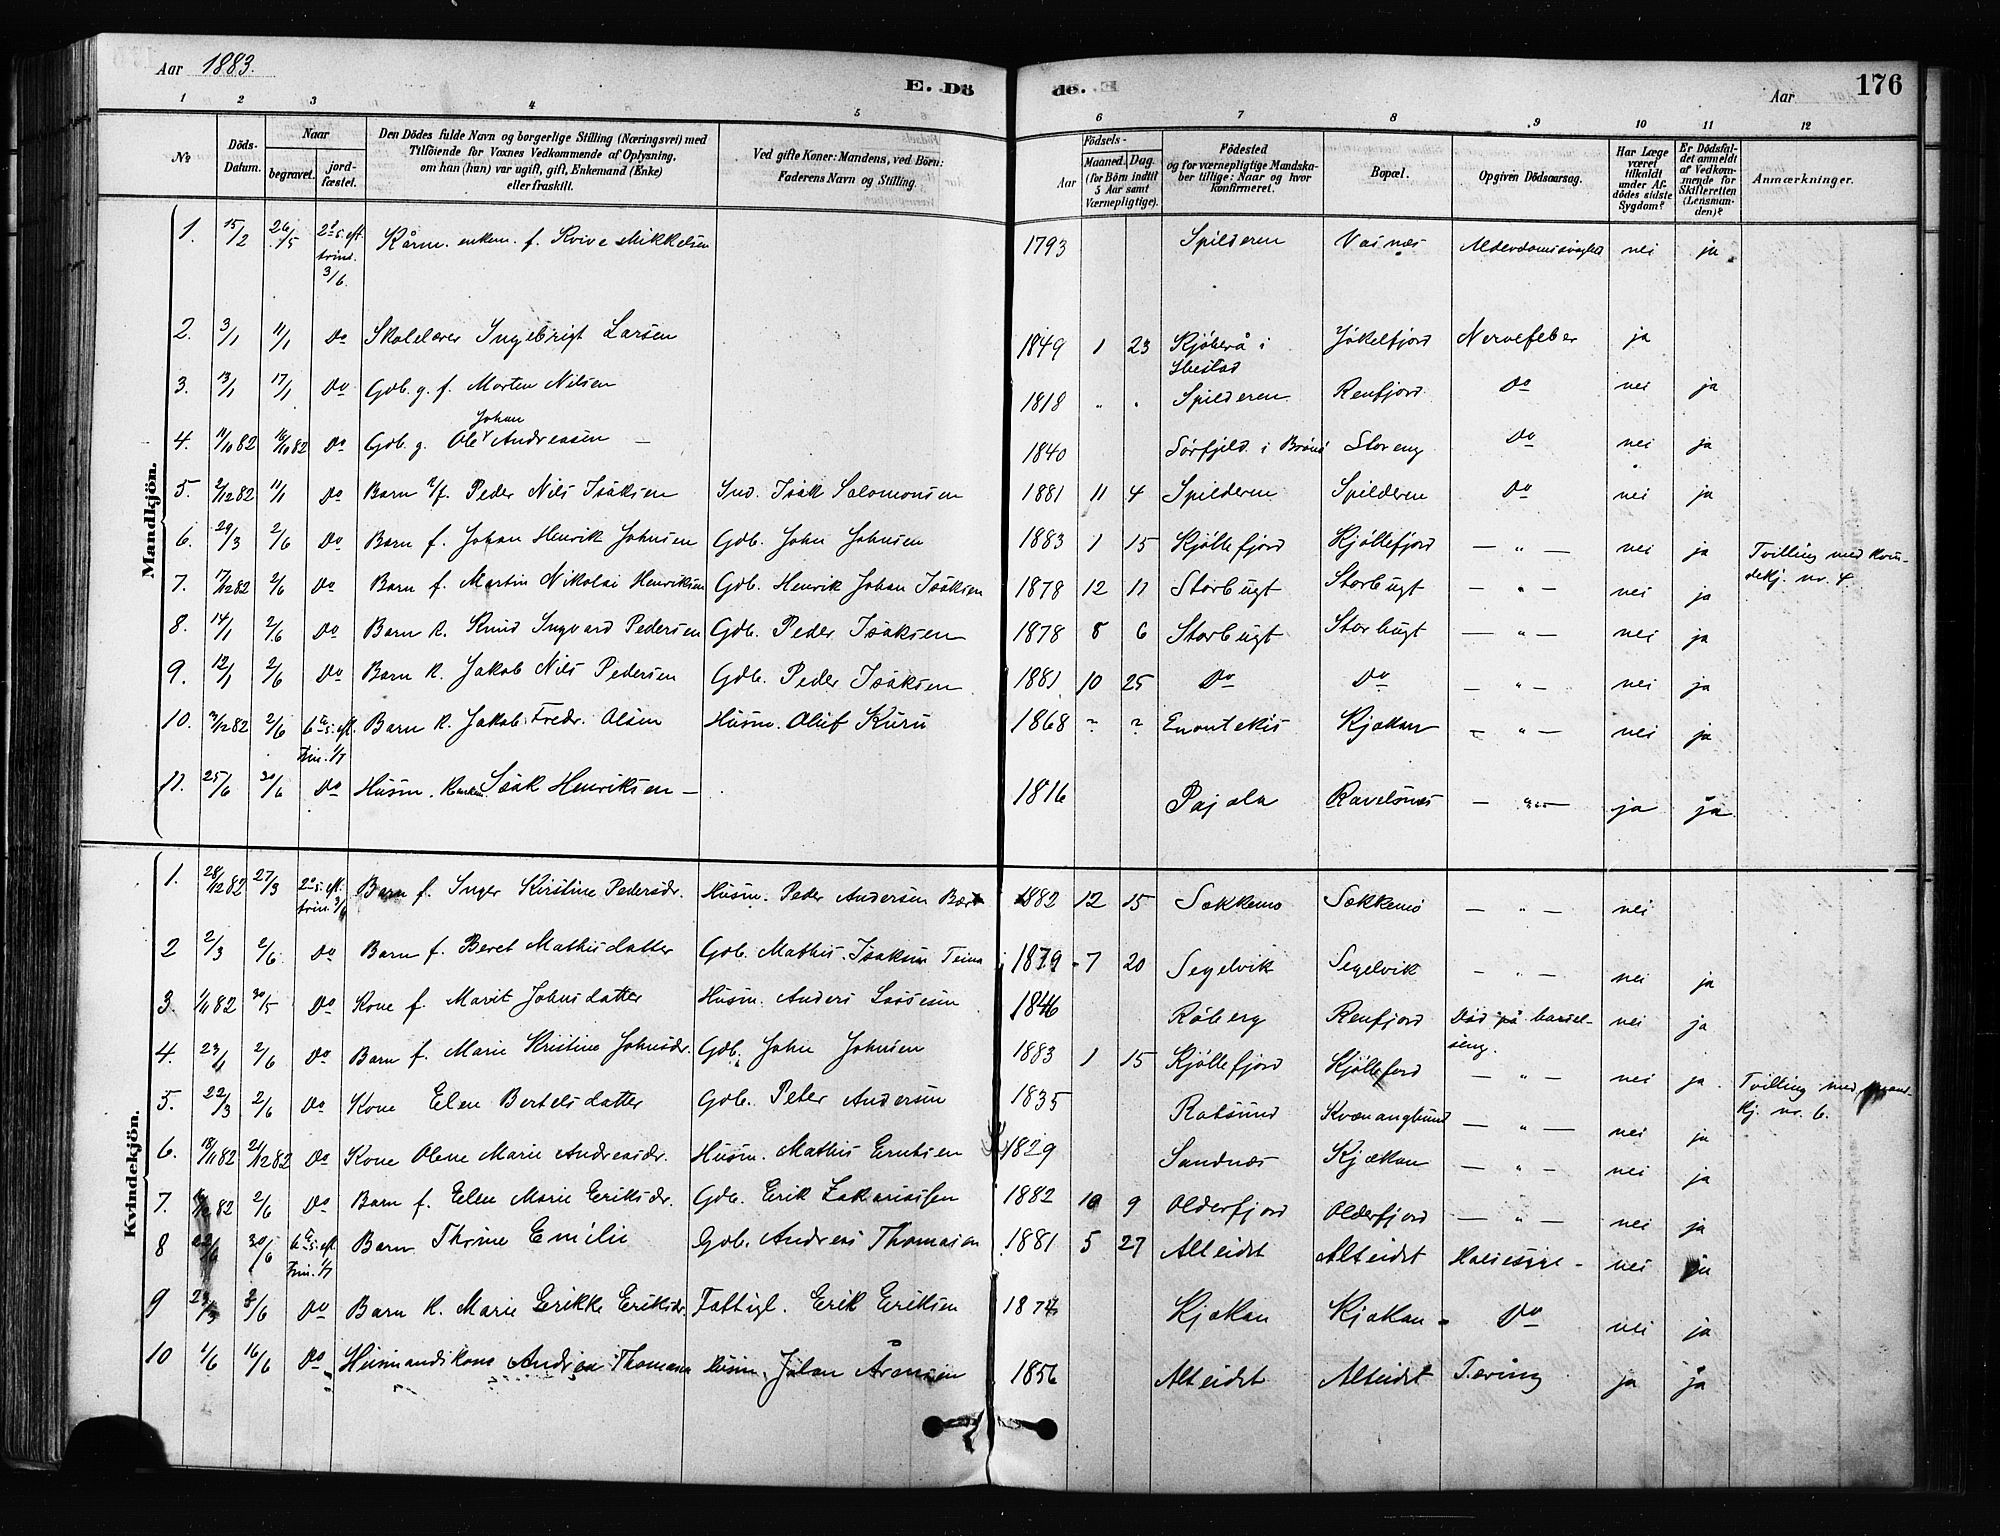 Aar 1883.
E. Dö
de. E.
Aar
176
1 2 3 4 5 6 7 8 9 10 11 12
No
Döds-Datum.
Naar
begravet.
jord-fæstet.
Den Dödes fulde Navn og borgerlige Stilling (Næringsvei) med
Tilföiende for Voxnes Vedkommende af Oplysning,
om han (hun) var ugift, gift, Enkemand (Enke)
eller fraskilt.
Ved gifte Koner: Mandens, ved Börn:
Faderens Navn og Stilling.
Födsels-
Aar
Maaned. Dag.
(for Börn indtil
5 Aar samt
Værnepligtige).
Födested
og for værnepligtige Mandska-
ber tillige: Naar og hvor
konfirmeret.
Bopæl.
Opgiven Dödsaarsag.
Har Læge
været
tilkaldt
under Af-
dödes sidste
Sygdom?
Er Dödsfal-
det anmeldt
af Vedkom-
mende for
Skifteretten
(Lensman-
den)?
Anmærkninger.
Mandkjön.
1. 15/2 26/5 2d s. eft. trin. 3/6. enkem. f. Mikkelsen 1793 Spilderen Vasnæs Alderdomssvaghed nei ja
2. 3/1 11/1 Do Skolelærer Ingebrigt Larsen 1849 1 23 i Ibestad Jökelfjord Nervefeber ja
3. 13/1 17/1 Do Gdb. g. f. Morten Nilsen 1818 " " Spilderen Renfjord Do nei ja
4. 11/10 82 16/10 82 Do Gdb. g. Ole Johan Andreasen — 1840 Sörfjeld i Brönö Storeng Do nei ja
5. 2/12 82 11/1 Do Barn n/f. Peder Nils Isaksen Ind. Isak Salomonsen 1881 11 4 Spilderen Spilderen Do nei ja
6. 29/3 2/6 Do Barn f. Johan Henrik Johnsen Gdb. John Johnsen 1883 1 15 Kjöllefjord Kjöllefjord — " — nei ja Tvilling med kvin-
dekj. nr. 4.
7. 17/12 82 2/6 Do Barn f. Martin Nikolai Henriksen Gdb. Henrik Johan Isaksen 1878 12 11 Storbugt Storbugt — " — nei ja
8. 14/1 2/6 Do Barn k. Knud Ingvard Pedersen Gdb. Peder Isaksen 1878 8 6 Storbugt Storbugt — " — nei ja
9. 12/1 2/6 Do Barn k. Jakob Nils Pedersen Gdb. Peder Isaksen 1881 10 25 Do Do — " — nei ja
10. 2/6 6te s. eft. Trin. 1/7 Barn k. Jakob Fredr. Olsen Husm. Oluf Kuru 1868 ? ? Enontekis Kjækan — " — nei ja
11. 25/6 30/6 Do Husm. k. enkem. Isak Henriksen — 1816 Pajala Ravelsnæs — " — ja ja
Kvindekjön.
1. 28/12 82 27/3 2d s. eft. trin. 3/6 Barn f. Inger Kirstine Pedersdr. Husm. Peder Andersen 1882 12 15 Søkkemo Søkkemo — " — nei
2 2/3 2/6 Do Barn f. Beret Mathisdatter Gdb. Mathis Isaksen 1879 7 20 Segelvik Segelvik — " — nei ja
3. 1/11 82 30/5 Do Kone f. Marit Johnsdatter Husm. Anders Lassesen 1846 Röberg Renfjord Död på barsel-
seng. nei ja
4. 23/1 2/6 Do Barn f. Marie Kristine Johnsdr. Gdb. John Johnsen 1883 1 15 Kjöllefjord Kjöllefjord — " — nei ja Tvilling med mand-
kj. nr. 6.
5. 22/3 2/6 Do Kone Elen Bertelsdatter Gdb. Peter Andersen 1835 Rotsund Kvænangbund — " — nei ja
6. 13/11 82 21/12 82 Do Kone Olene Marie Andreasdr. Husm. Mathis Erntsen 1829 Sandnæs Kjækan — " — nei ja
7. 82 2/6 Do Barn f. Elen Marie Eriksdr. Gdb. Erik Zakariassen 1882 10 9 Olderfjord Olderfjord — " — nei ja
8 22/6 30/6 6te s. eft. Trin. 1/7 Barn Thrine Emilie Gdb. Andreas Thomasen 1881 5 27 Alteidet Alteidet Halsesyge - nei ja
9 2/6 Do Barn k. Marie Erikke Eriksdr. Fattigl. Erik Eriksen 1874 Kjækan Kjækan Do nei ja
10 1/6 16/6 Do Husmandskone Andrea Thomasen Husm. Johan Åronsen 1856 Alteidet Alteidet Tæring ja ja